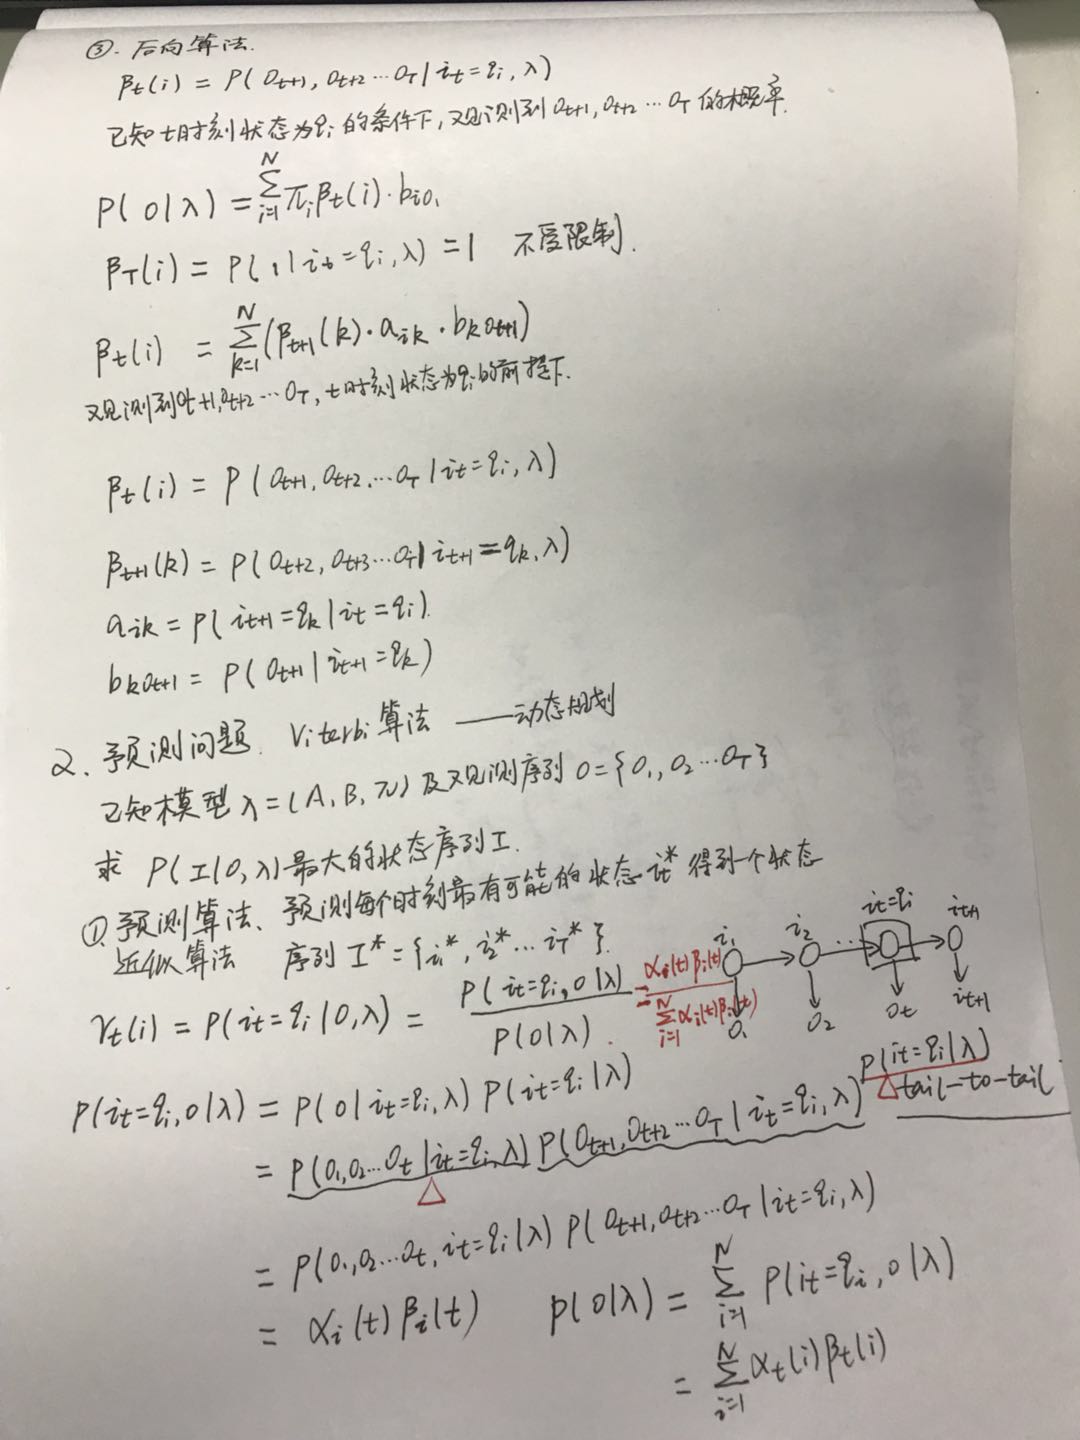 ③. 后向算法.
βt(i) = P(Ot+1, Ot+2 ··· OT | it = qi, λ)
已知t时刻状态为qi的条件下, 观测到Ot+1, Ot+2 ··· OT的概率.
P(O|λ) = Σ_{i=1}^{N} πi βt(i)·biO1
βT(i) = P( , | it = qi, λ) = 1 不受限制.
βt(i) = Σ_{k=1}^{N} (βt+1(k)·aik·bkOt+1)
观测到Ot+1, Ot+2 ··· OT, t时刻状态为qi的前提下.
βt(i) = P(Ot+1, Ot+2, ··· OT | it = qi, λ)
βt+1(k) = P(Ot+2, Ot+3 ··· OT | it+1 = qk, λ)
aik = P(it+1 = qk | it = qi).
bkOt+1 = P(Ot+1 | it+1 = qk)
2、预测问题. Viterbi算法 ——动态规划
已知模型 λ = (A, B, π) 及观测序列 O = {O1, O2 ··· OT}
求 P(I|O, λ)最大的状态序列I.
①. 预测算法、预测每个时刻最有可能的状态it* 得到一个状态
近似算法 序列 I* = {i1*, i2* ··· iT*}.
i1 i2 ··· it=qi it+1
O1 O2 Ot it+1
γt(i) = P(it = qi | O, λ) = P(it = qi, O|λ) / P(O|λ). = αi(t) βi(t) / Σ_{i=1}^{N} αi(t)βi(t)
P(it = qi, O|λ) = P(O | it = qi, λ) P(it = qi |λ)
= P(O1, O2 ··· Ot | it = qi, λ) P(Ot+1, Ot+2 ··· OT | it = qi, λ) P(it = qi |λ)
△ △ tail-to-tail
= P(O1, O2 ··· Ot, it = qi |λ) P(Ot+1, Ot+2 ··· OT | it = qi, λ)
= αi(t) βi(t) P(O|λ) = Σ_{i=1}^{N} P(it = qi, O|λ)
= Σ_{i=1}^{N} αt(i) βt(i)